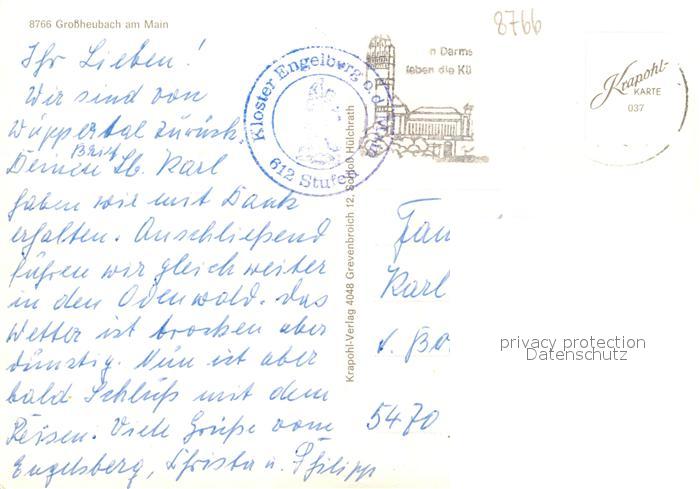 8766 Großheubach am Main
8766
Ihr Lieben!
Wir sind von
Wuppertal zurück.
Brief
Deinen lb. Karl
haben wir mit Dank
erhalten. Anschließend
fuhren wir gleich weiter
in den Odenwald. Das
Wetter ist trocken aber
dünstig. Nun ist aber
bald Schluß mit dem
Reisen. Viele Grüße vom
Engelsberg, Christa u. Philipp
Kloster Engelberg a. d. Main
612 Stufen
n Darms
leben die Kü
Krapohl-Verlag 4048 Grevenbroich 12, Schloß Hülchrath
Krapohl-
KARTE
037
Fam
Karl
v. Bo
5470
privacy protection
Datenschutz